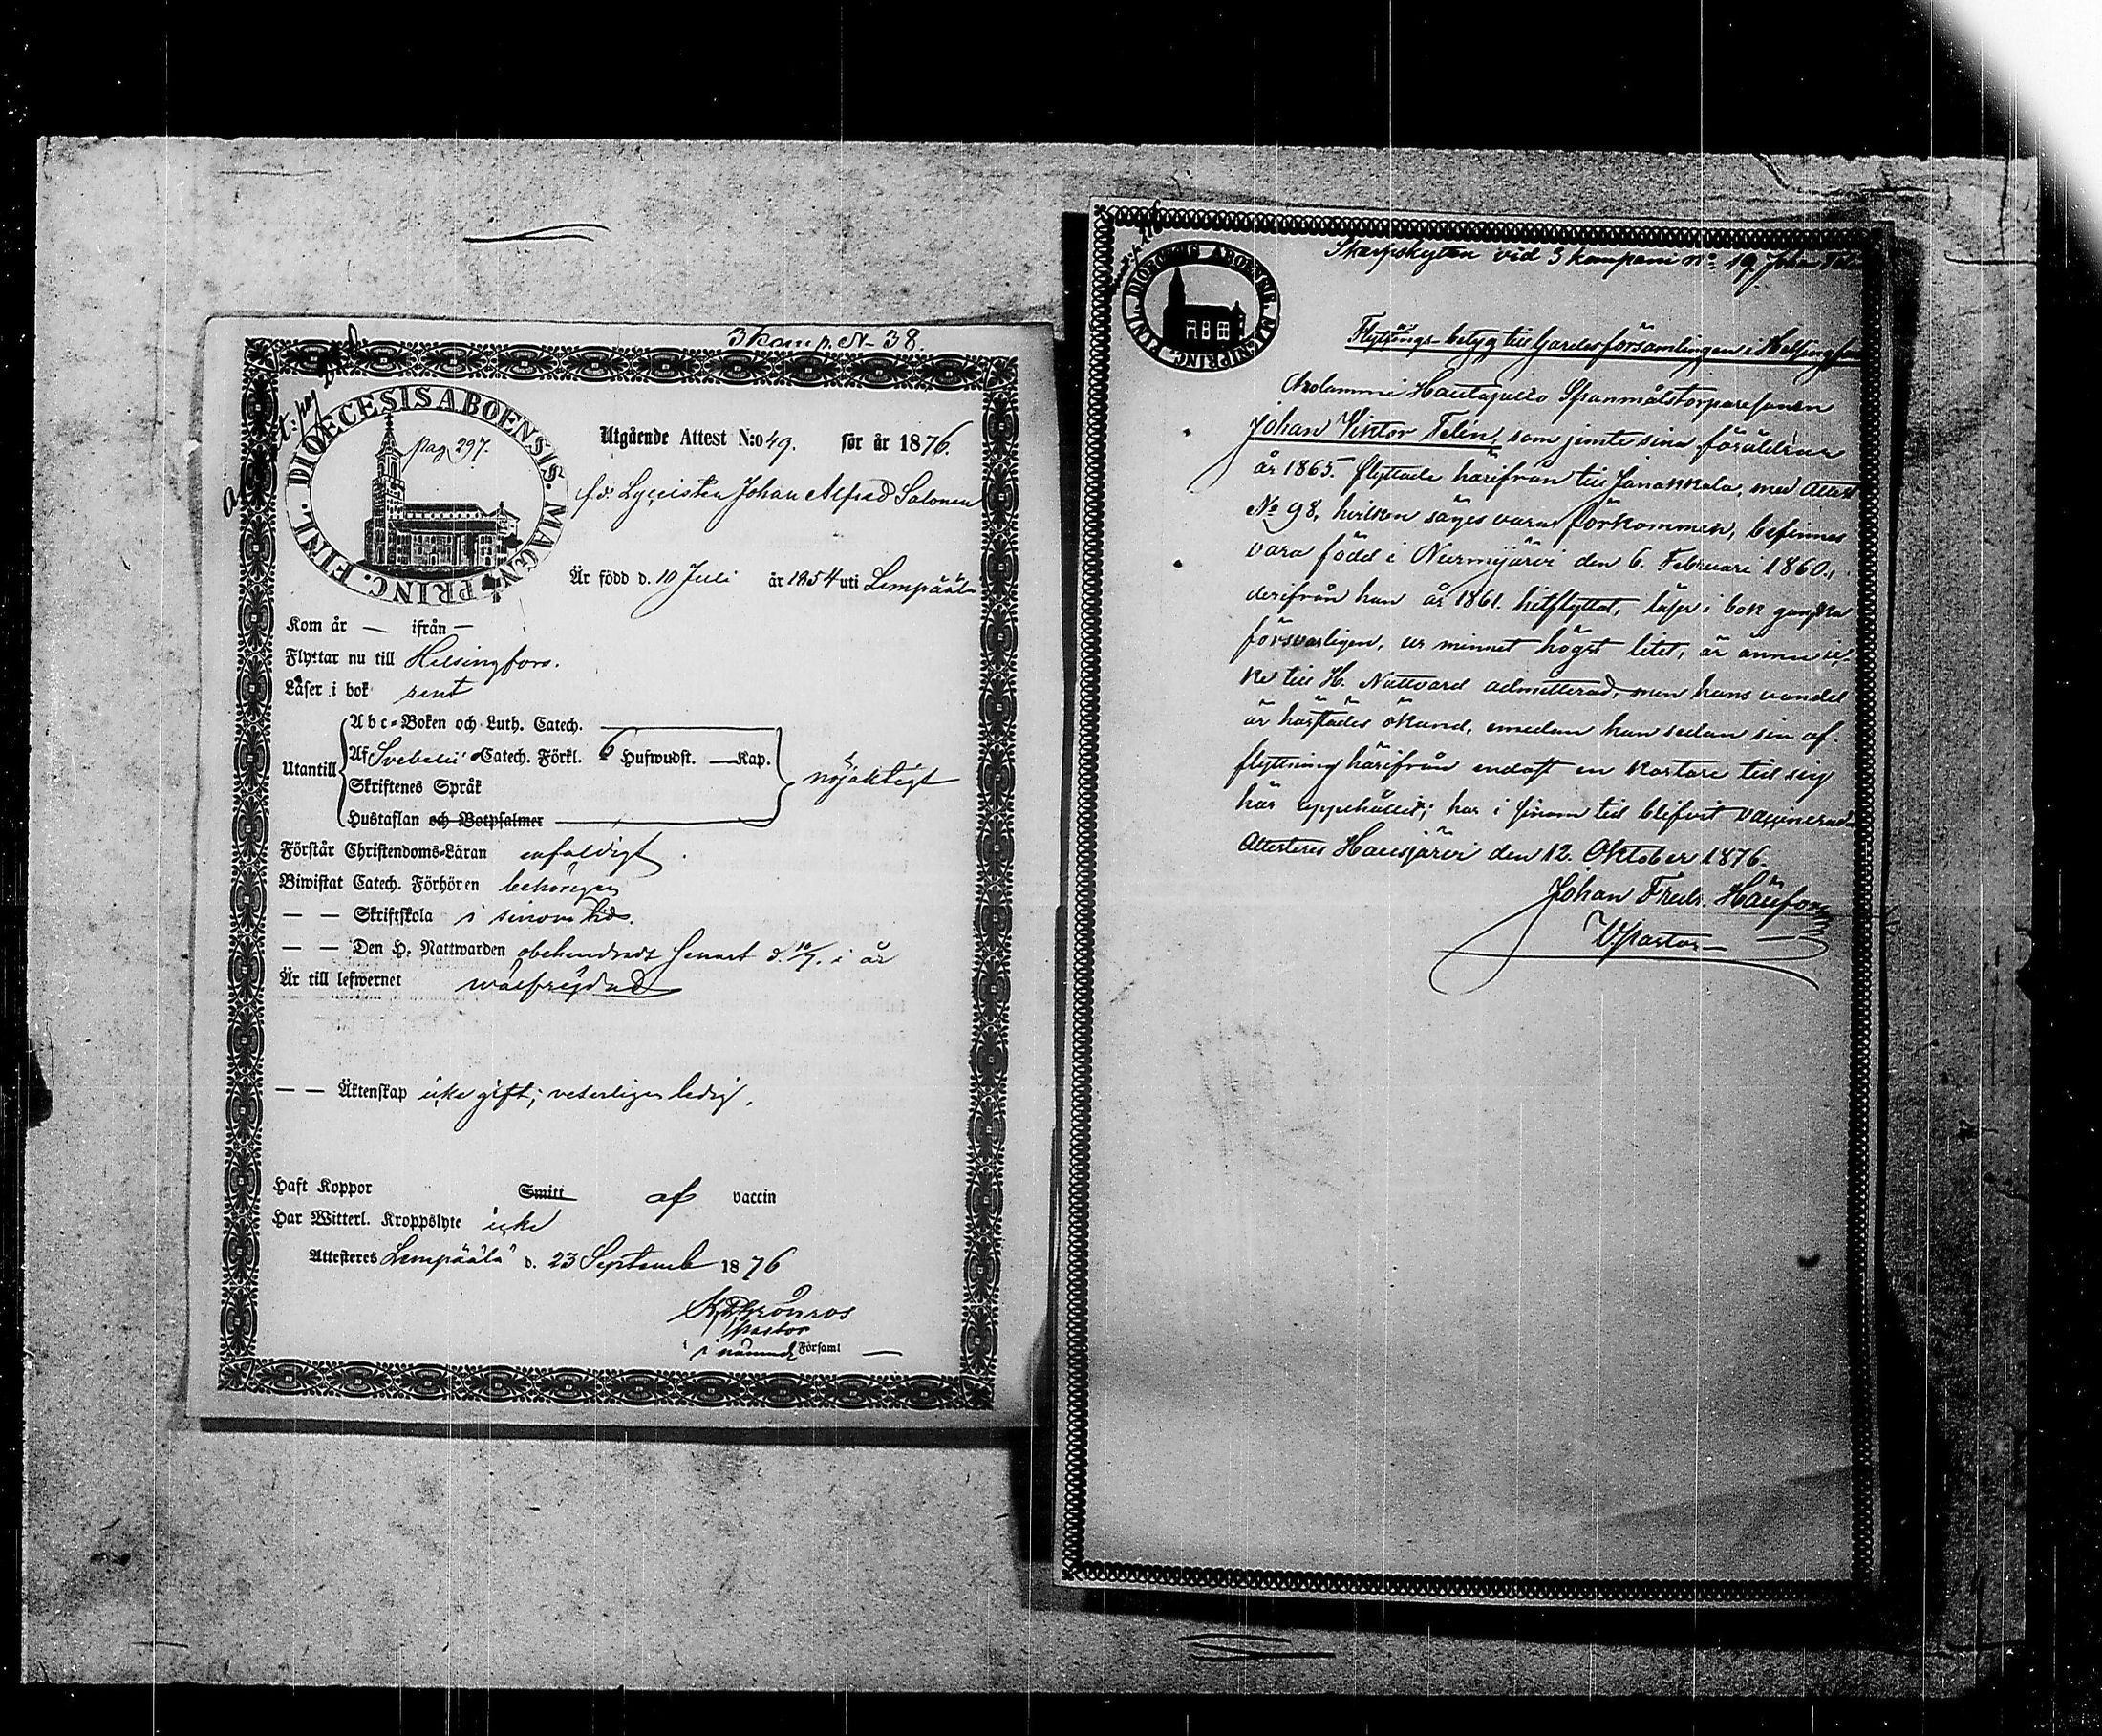 3 komp. N- 38.
DIOECESIS ABOENSIS. MAGN. PRINC. FINL.
pag 297.
Utgående Attest N:o 49. för år 1876.
f.d. Lyceisten Johan Alfred Salonen
Är född d. 10 Juli år 1854 uti Lempäälä
Kom år — ifrån —
Flyttar nu till Helsingfors.
Läser i bok rent
Abc-Boken och Luth. Catech.
Utantill Af Svebelii Catech. Förkl. 6 Hufwudst. — Kap. nöjaktigt
Skriftenes Språk
Hustaflan och Botpsalmer
Förstår Christendoms-Läran enfaldigt
Biwistat Catech. Förhören behörigen
— — Skriftskola i sinom tid.
— — Den H. Nattwarden obehindradt senast d. 10/7. i år
Är till lefwernet wälfrejdad
— — Äktenskap icke gift; veterligen ledig.
Haft Koppor Smitt af vaccin
Har Witterl. Kroppslyte icke
Attesteres Lempäälä d. 23 Septemb 1876
Grönroos
Pastor
i nämnde Församl —
Skarpskytten vid 3 kompani No 19 Johan Felin
DIOECESIS ABOENSIS. MAGN. PRINC. FINL.
Flyttnings betyg till Gardesförsamlingen i Helsingfors
Hautapelto Spanmålstorparesonen
Johan Viktor Felin, som jemte sina föräldrar
år 1865. flyttade härifrån till Janakkala, med Attest
No 98, hvilken säges vara förkommen, befinnes
vara född i Nurmijärvi den 6. Februari 1860.,
derifrån han år 1861. hitflyttat, läser i bok ganska
försvarligen, ur minnet högst litet, är ännu ic-
ke till H. Nattvard admitterad, men hans vandel
är härstädes okänd, emedan han sedan sin af-
flyttning härifrån endast en kortare tid sig
här uppehållit; har i sinom tid blifvit vaccinerad
Attesteres Hausjärvi den 12. Oktober 1876.
Johan Fredr.
V. Pastor